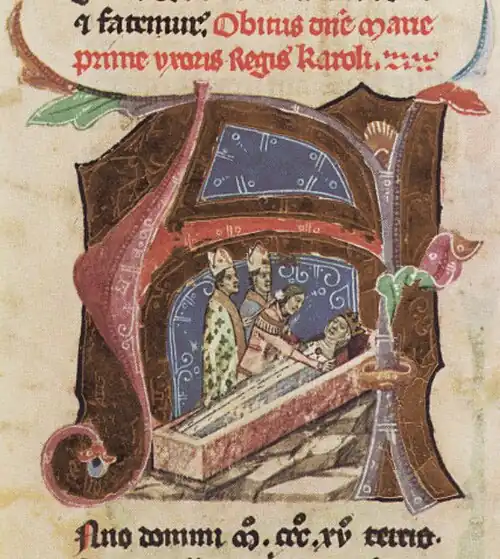 q̄ fatemur. Obitus dn̄e Marie
prime vxoris Regis Karoli.
Nno domini M. ccc. xv terrig.